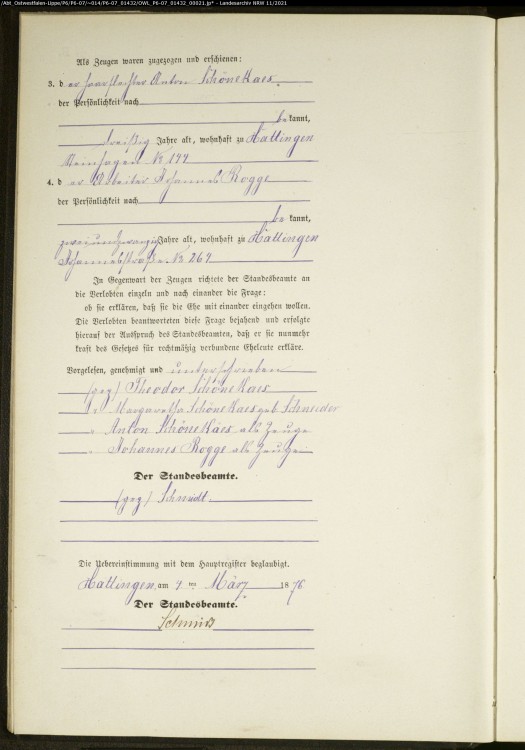 /Abt_Ostwestfalen-Lippe/P6/P6-07/~014/P6-07_01432/OWL_P6-07_01432_00021.jp* - Landesarchiv NRW 11/2021
Als Zeugen waren zugezogen und erschienen:
3. d er Anton Schönekaes
der Persönlichkeit nach
be kannt,
dreißig Jahre alt, wohnhaft zu Hattingen
No 144
4. d er Arbeiter Johannes Rogge
der Persönlichkeit nach
be kannt,
zweiundzwanzig Jahre alt, wohnhaft zu Hattingen
Johannesstraße No 269
In Gegenwart der Zeugen richtete der Standesbeamte an
die Verlobten einzeln und nach einander die Frage:
ob sie erklären, daß sie die Ehe mit einander eingehen wollen.
Die Verlobten beantworteten diese Frage bejahend und erfolgte
hierauf der Ausspruch des Standesbeamten, daß er sie nunmehr
kraft des Gesetzes für rechtmäßig verbundene Eheleute erkläre.
Vorgelesen, genehmigt und unterschrieben
(gez) Theodor Schönekaes
" Margaretha Schönekaes geb. Schneider
" Anton Schönekäes als Zeuge
" Johannes Rogge als Zeuge
Der Standesbeamte.
(gez) Schmidt
Die Uebereinstimmung mit dem Hauptregister beglaubigt.
Hattingen, am 4 ten März 1876
Der Standesbeamte.